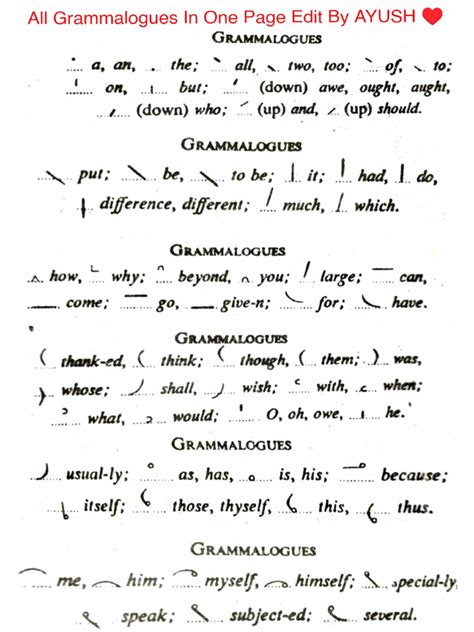 All Grammalogues In One Page Edit By AYUSH ❤️
GRAMMALOGUES
a, an, the; all, two, too; of, to;
on, but; (down) awe, ought, aught,
(down) who; (up) and, (up) should.
GRAMMALOGUES
put; be, to be; it; had, do,
difference, different; much, which.
GRAMMALOGUES
how, why; beyond, you; large; can,
come; go, give-n; for; have.
GRAMMALOGUES
thank-ed, think; though, them; was,
whose; shall, wish; with, when;
what, would; O, oh, owe, he.
GRAMMALOGUES
usual-ly; as, has, is, his; because;
itself; those, thyself, this, thus.
GRAMMALOGUES
me, him; myself, himself; special-ly,
speak; subject-ed; several.